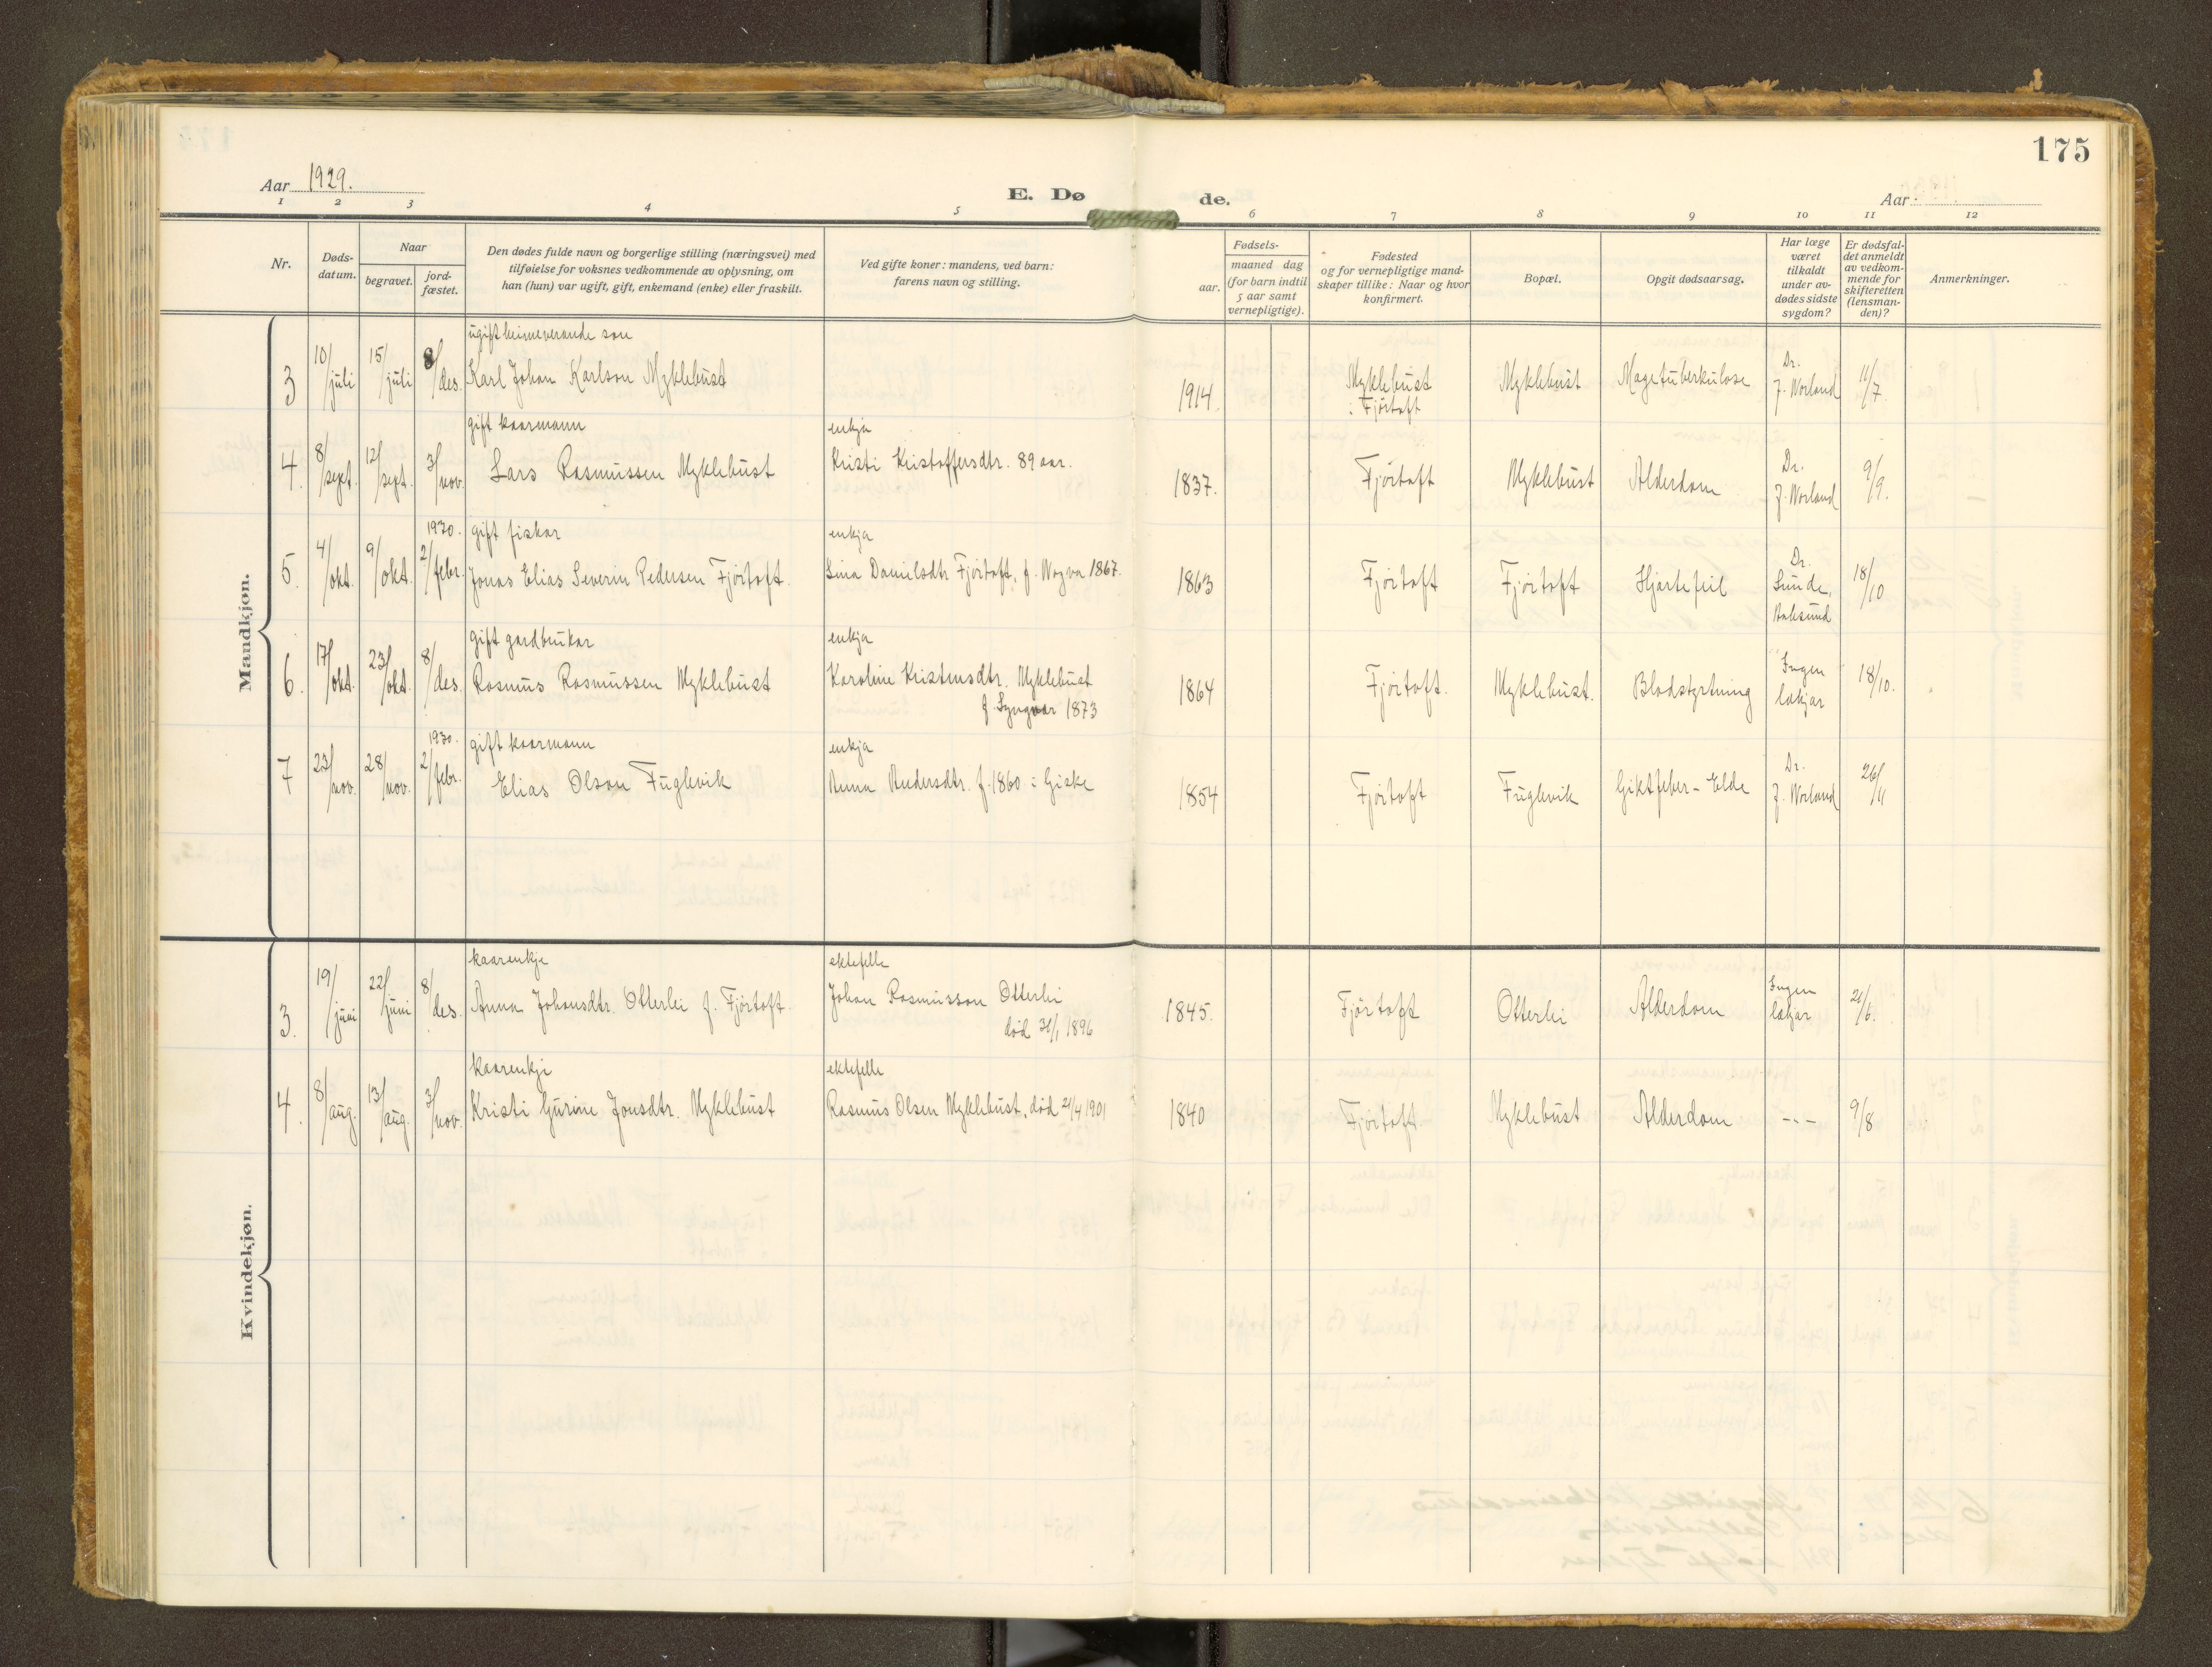 175
Aar 1929.
E. Dø de.
Aar
1 2 3 4 5 6 7 8 9 10 11 12
Nr.
Døds-
datum.
Naar
begravet.
jord-
fæstet.
Den dødes fulde navn og borgerlige stilling (næringsvei) med
tilføielse for voksnes vedkommende av oplysning, om
han (hun) var ugift, gift, enkemand (enke) eller fraskilt.
Ved gifte koner: mandens, ved barn:
farens navn og stilling.
Fødsels-
aar.
maaned dag
(for barn indtil
5 aar samt
vernepligtige).
Fødested
og for vernepligtige mand-
skaper tillike: Naar og hvor
konfirmert.
Bopæl.
Opgit dødsaarsag.
Har læge
været
tilkaldt
under av-
dødes sidste
sygdom?
Er dødsfal-
det anmeldt
av vedkom-
mende for
skifteretten
(lensman-
den)?
Anmerkninger.
Mandkjøn.
ugift heimeverande son
3 10/juli 15/juli 8/des. Karl Johan Karlson Myklebust 1914. Myklebust i Fjørtoft Myklebust Magetuberkulose Dr. J. Norland 11/7.
gift kaarmann enkja
4. 8/sept. 12/sept. 3/nov. Lars Rasmussen Myklebust Kristi Kristoffersdtr. 89 aar. 1837. Fjørtoft Myklebust Alderdom Dr. J. Norland 9/9.
1930. gift fiskar enkja
5. 4/okt. 9/okt. 2/febr. Jonas Elias Severin Pedersen Fjørtoft. Lina Danielsdtr Fjørtoft, f. Nogva 1867. 1863 Fjørtoft Fjørtoft Hjartefeil Dr. Sunde, Aalesund 18/10
gift gardbrukar enkja
6. 17/okt. 23/okt. 8/des. Rasmus Rasmussen Myklebust Karoline Kristensdtr. Myklebust 1864 Fjørtoft. Myklebust. Blodstyrtning Ingen lækjar 18/10.
f. Lyngvær 1873
1930. gift kaarmann enkja
7 23/nov. 28/nov. 2/febr. Elias Olson Fuglevik Anna Andersdtr. f. 1860 i Giske 1854 Fjørtoft Fuglevik Giktfeber - Elde Dr. J. Norland 26/11
Kvindekjøn.
kaarenkje ektefelle
3. 19/juni 22/juni 8/des. Anna Johansdtr. Otterlei f. Fjørtoft. Johan Rasmusson Otterlei 1845. Fjørtoft Otterlei Alderdom Ingen lækjar 21/6.
død 31/1 1896
kaarenkje ektefelle
4. 8/aug. 13/aug. 3/nov. Kristi Gurine Jonsdtr. Myklebust Rasmus Olsen Myklebust, død 21/4 1901 1840 Fjørtoft. Myklebust Alderdom --- 9/8